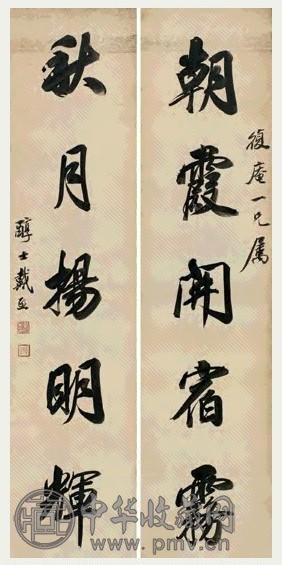 復庵一兄属
朝霞開宿霧
秋月揚明輝
醇士戴熙
中华收藏网
www.pmv.cn